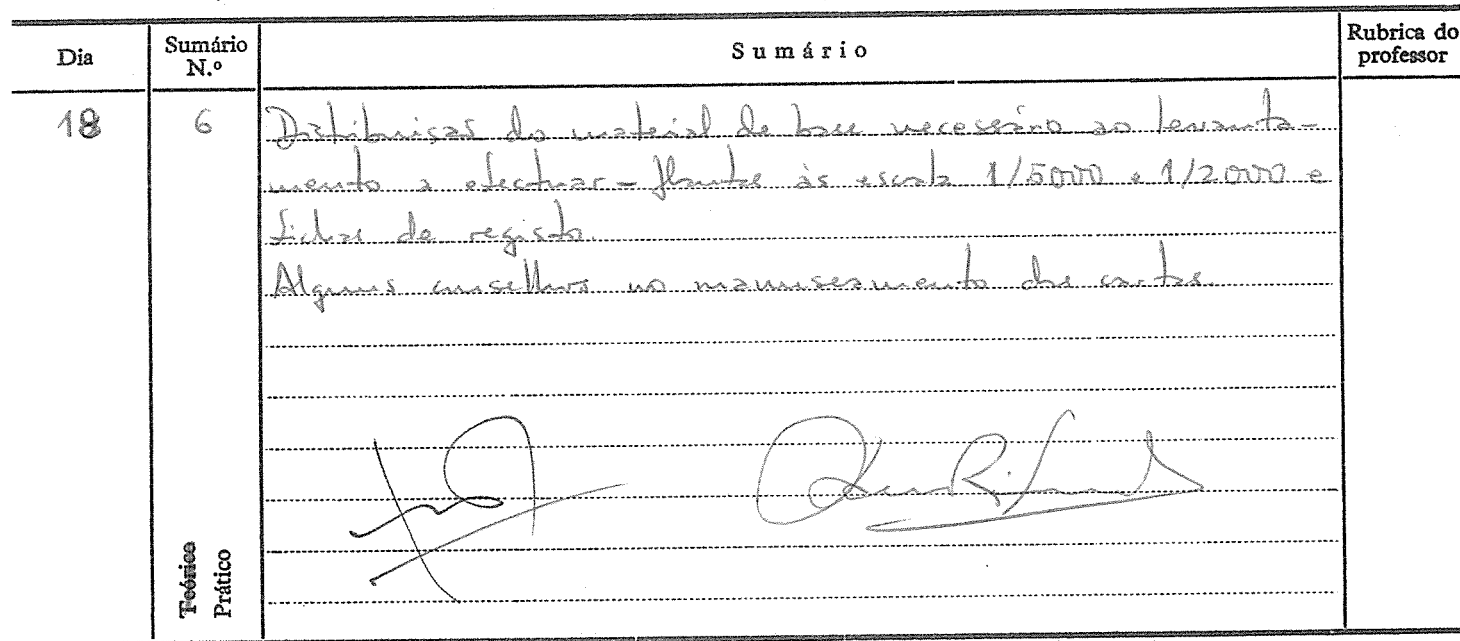 Dia
Sumário N.º
Sumário
Rubrica do professor
18
6
Distribuição do material de base necessário ao levanta-
mento a efectuar - plantas às escala 1/5000 e 1/2000 e
fichas de registo.
Alguns conselhos no manuseamento das cartas.
Teórico
Prático